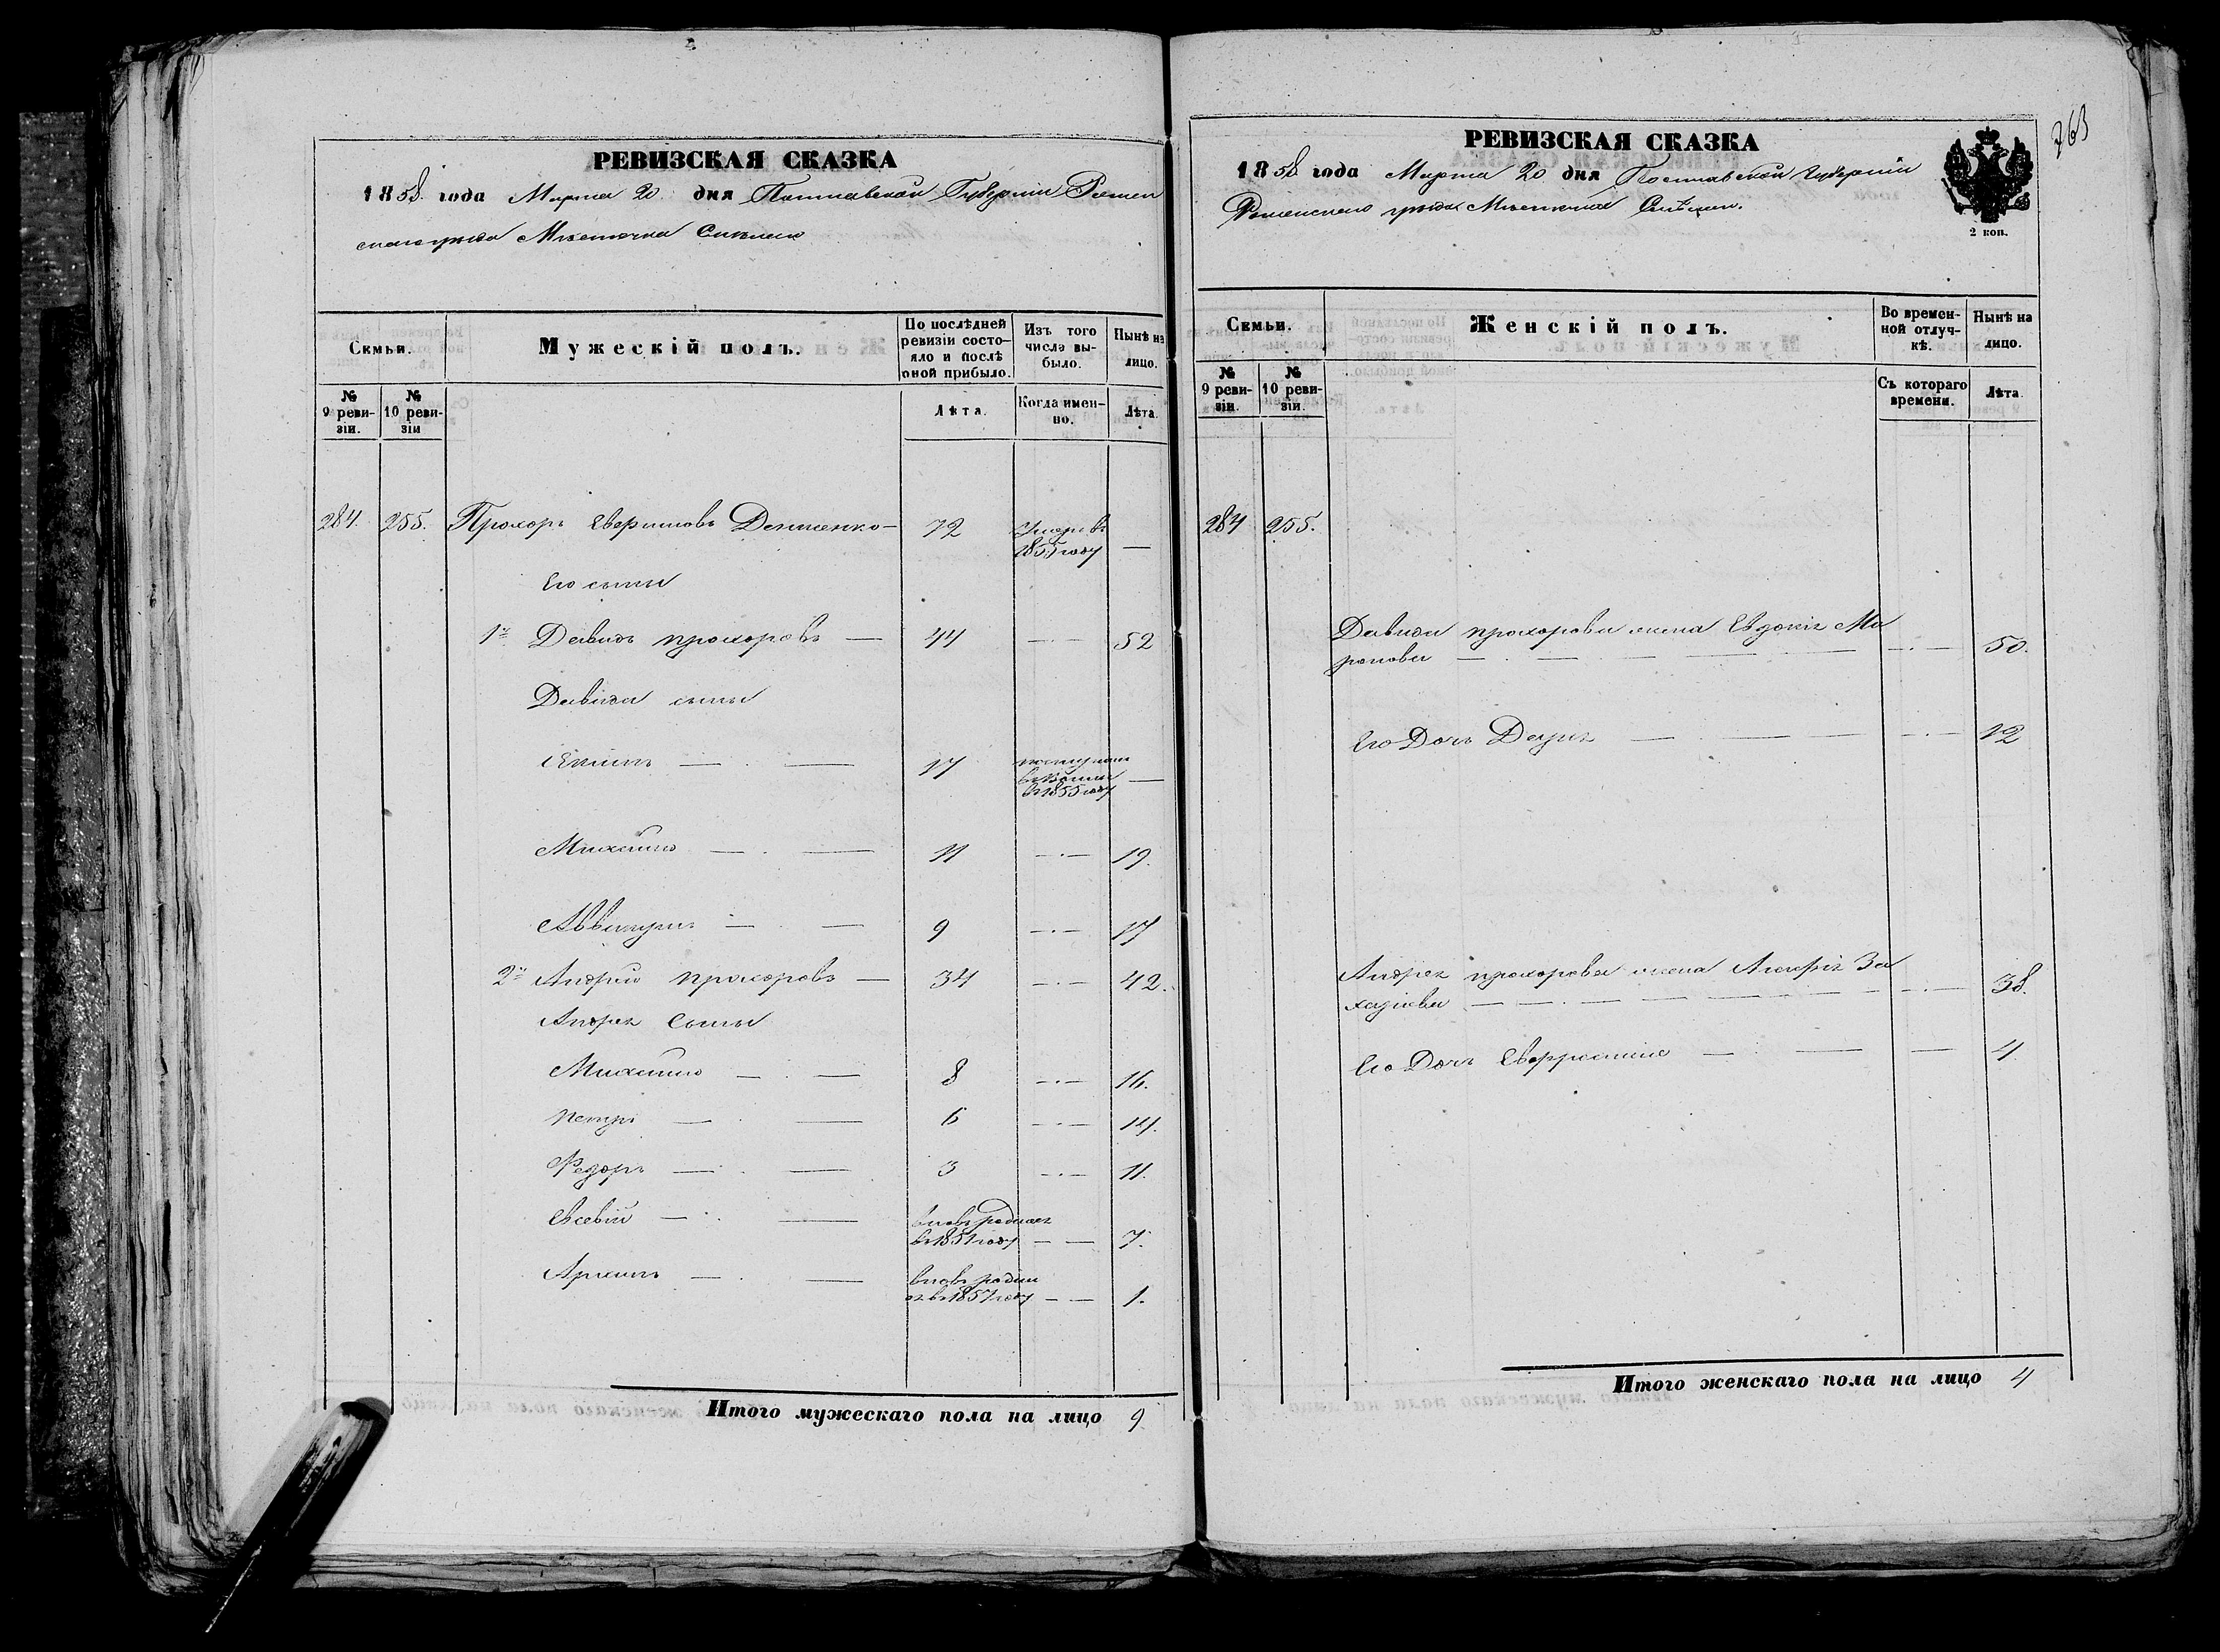 РЕВИЗСКАЯ СКАЗКА
1858 года Марта 20 дня Полтавской Губерніи Ромен
скаго уѣзда Мѣстечка
Семьи.
Мужескій полъ.
По послѣдней ревизіи состояло и послѣ оной прибыло.
Изъ того числа выбыло.
Нынѣ на лицо.
№ 9 ревизіи.
№ 10 ревизіи
Лѣта.
Когда именно.
Лѣта.
284. 255. Прохоръ Денисенко — 72 Умеръ въ
1855 году —
Его сыны
1й Давидъ Прохоровъ — 44 — — 52
Давида сыны
Екимъ — . — 17 поступилъ
въ
въ 1855 году —
Михайло — . — 11 — . — 19.
Аввакумъ — . — 9 — . — 17
2й Андрей Прохоровъ — 34 — . — 42.
Андрея Сыны
Михайло — . — 8 — . — 16.
Петръ — . — 6 — . — 14.
Федоръ — . — 3 — . — 11.
Евсевій — . — вновь родился
въ 1851 году — — 7.
Архипъ — . — вновь родил
ся въ 1857 году — — 1.
Итого мужескаго пола на лицо 9
РЕВИЗСКАЯ СКАЗКА
263
1858 года Марта 20 дня Полтавской Губерніи
Роменскаго уѣзда Мѣстечка
2 коп.
Семьи.
Женскій полъ.
Во временной отлучкѣ.
Нынѣ на лицо.
№ 9 ревизіи.
№ 10 ревизіи.
Съ котораго времени.
Лѣта
284 255.
Давида Прохорова жена Евдокія Ма
ронова — . — — — — . — 50.
Его Дочь Дарья — . — — — . — 12
Андрея Прохорова жена За
харіева — — . — — — — . — 38.
Его Дочь — . — — 4
Итого женскаго пола на лицо 4